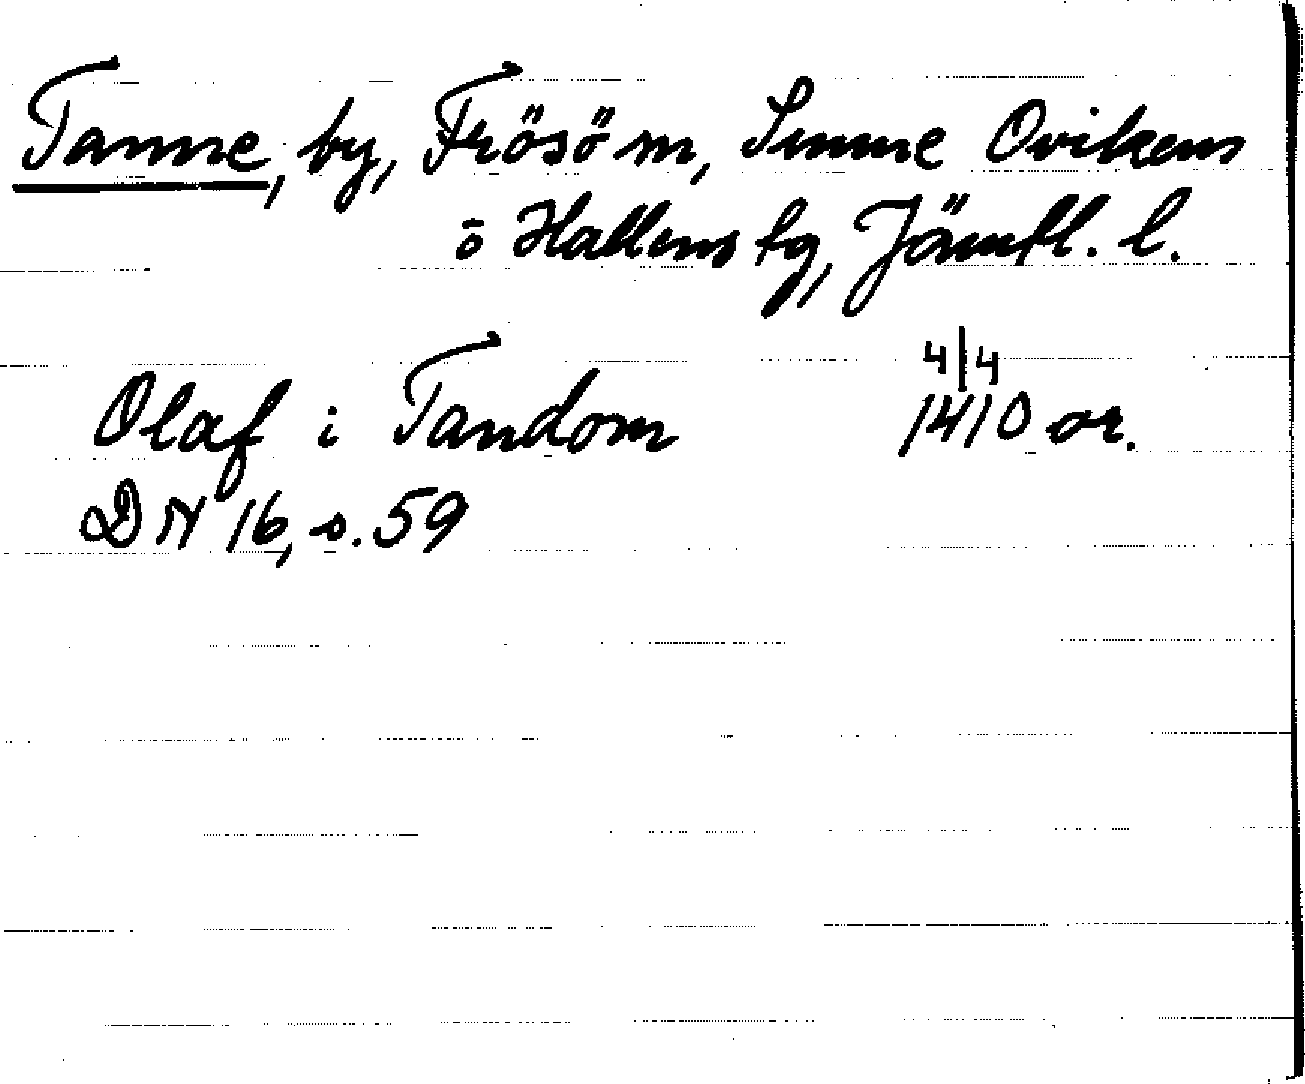 Tanne, by, Frösö sn, Sunne Ovikens
o Hallens tg, Jämtl. l.
4/4
Olaf i Tandom 1410 or.
DN 16, s. 59